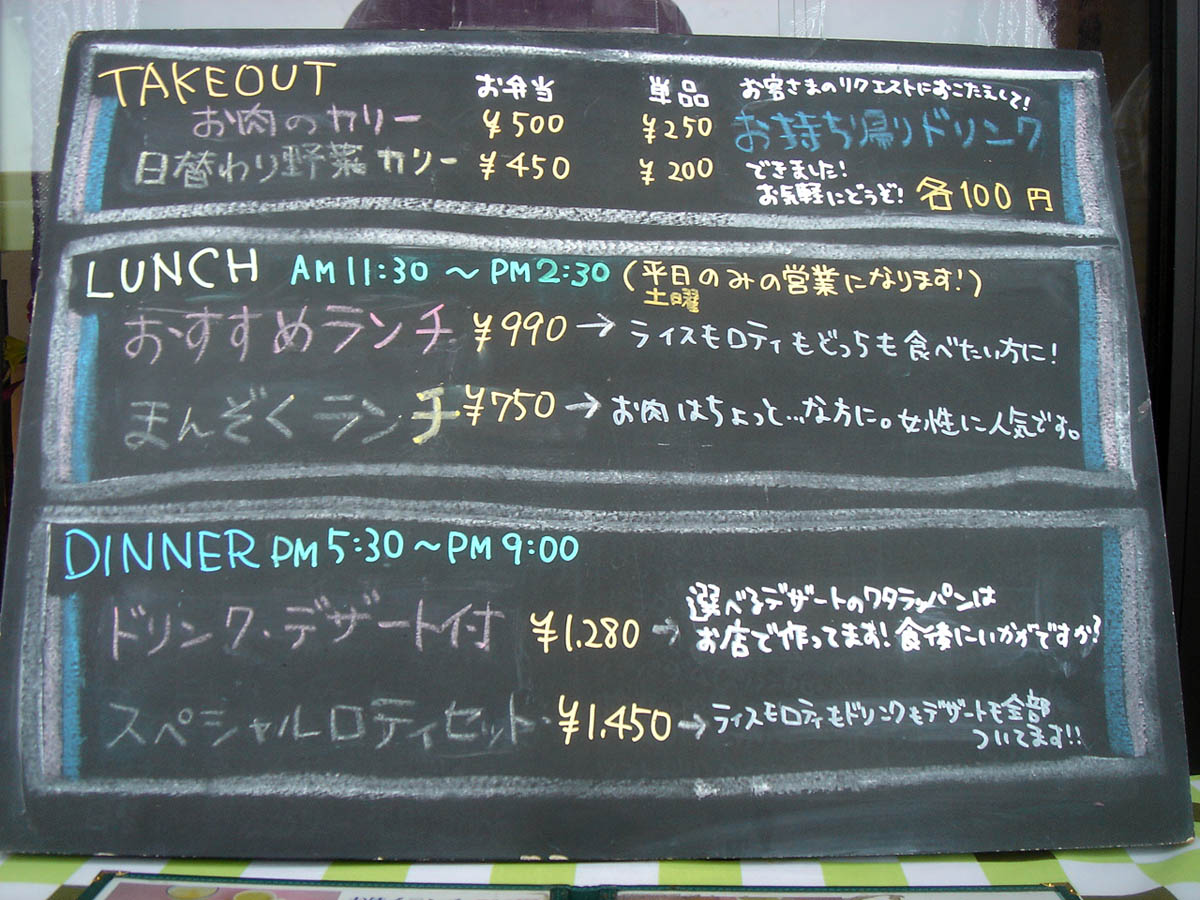 TAKEOUT お弁当 単品
お肉のカリー ¥500 ¥250
日替わり野菜カリー ¥450 ¥200
お客さまのリクエストにおこたえして!
お持ち帰りドリンク
できました!
お気軽にどうぞ! 各100円
LUNCH AM11:30 〜 PM2:30 (平日のみの営業になります!)
土曜
おすすめランチ ¥990 → ライスもロティもどっちも食べたい方に!
まんぞくランチ ¥750 → お肉はちょっと…な方に。女性に人気です。
DINNER PM5:30 〜 PM9:00
ドリンク・デザート付 ¥1.280 → 選べるデザートのワタラッパンは
お店で作ってます! 食後にいかがですか?
スペシャルロティセット・ ¥1.450 → ライスもロティもドリンクもデザートも全部
ついてます!!